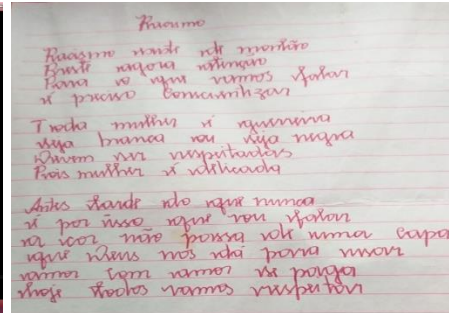 Racismo
Racismo de montão
Preste agora atenção
Para o que vamos falar
é preciso
Toda mulher é guerreira
seja branca ou seja negra
Devem ser respeitadas
Pois mulher é delicada
Antes tarde do que nunca
é por isso que vou falar
a cor não passa de uma capa
que Deus nos dá para usar
amor com amor se paga
hoje todos vamos respeitar